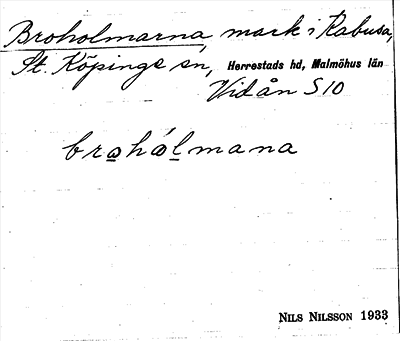 Broholmarna, mark i Kabusa,
St. Köpinge sn, Herrestads hd, Malmöhus län
Vid ån S 10
broholmana
NILS NILSSON 1933